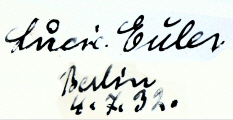 Lucie Euler.
Berlin
4.7.32.